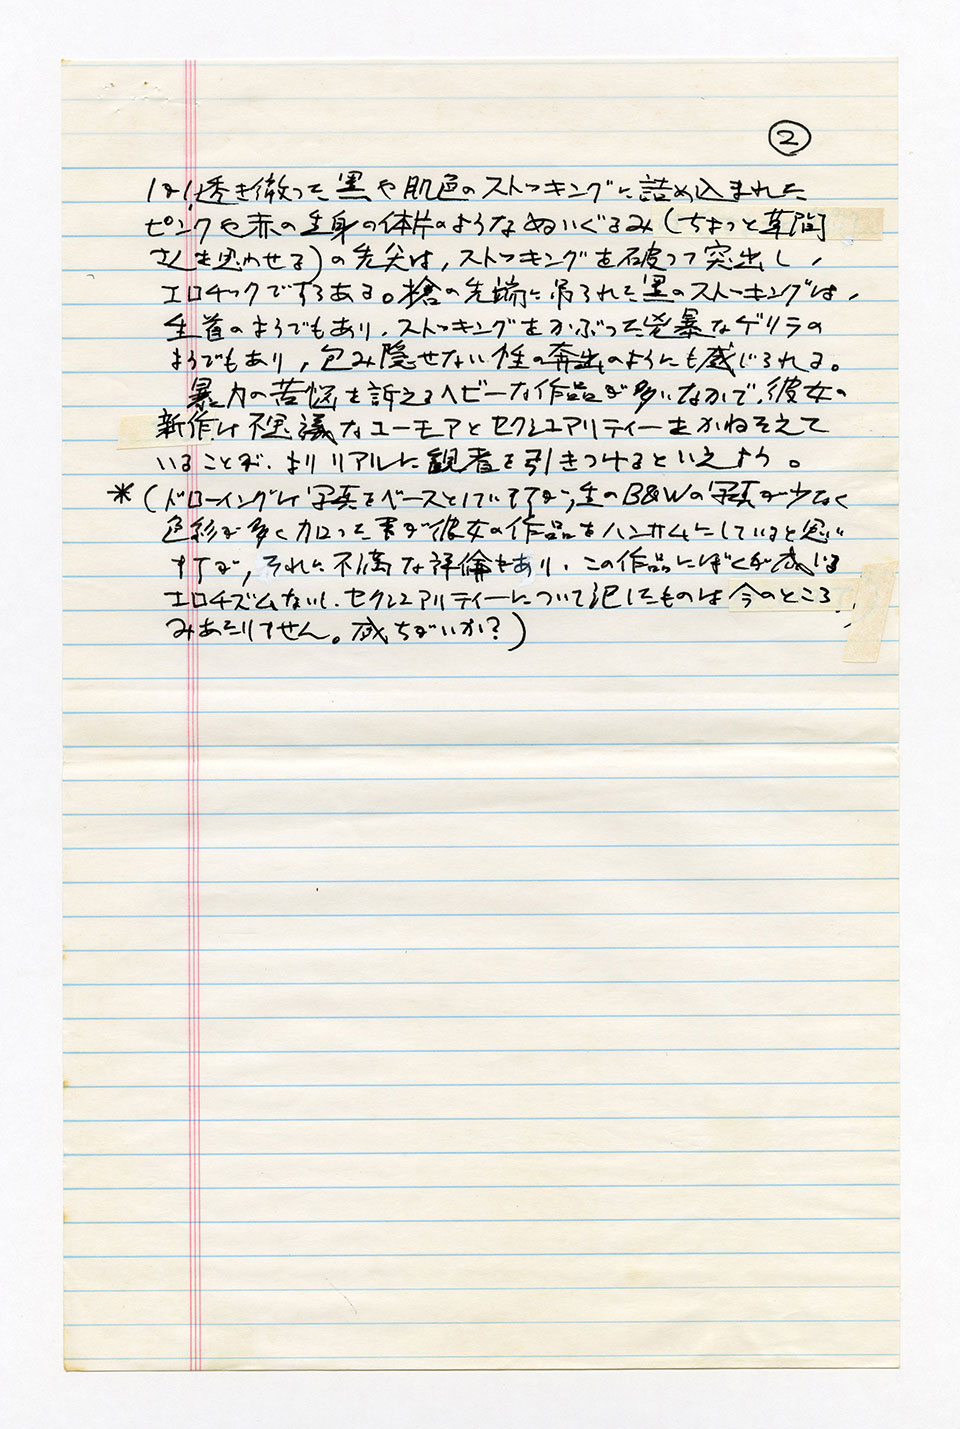 ②
は、透き徹った黒や肌色のストッキングに詰め込まれた
ピンクや赤の生身の体片のようなぬいぐるみ(ちょっと草間
さんを思わせる)の先尖は,ストッキングを破って突出し,
エロチックですらある。槍の先端に吊られた黒のストッキングは,
生首のようでもあり,ストッキングをかぶった兇暴なゲリラの
ようでもあり,包み隠せない性の奔出のようにも感じられる。
暴力の苦悩を訴えるヘビーな作品が多いなかで,彼女の
新作は不思議なユーモアとセクシュアリティーをかねそえて
いることが,よりリアルに観者を引きつけるといえよう。
*(ドローイングは写真をベースとしていますが,生のB&Wの写真が少なく
色彩が多く加わった事が彼女の作品をハンサムにしていると思い
ますが,それに不満な評論もあり,この作品にぼくが感じる
エロチズムないし,セクシュアリティーについて記したものは今のところ,
みあたりません。感ちがいか?)